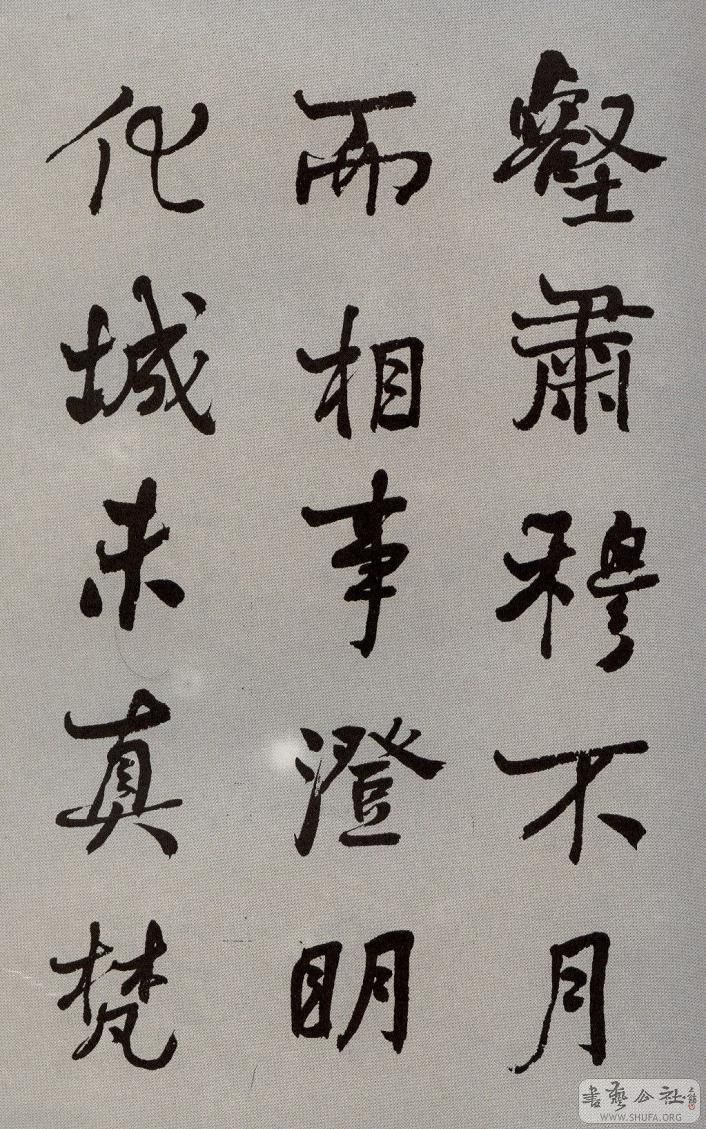 壑肅穆不月
而相事澄明
化城未真梵
書藝公社
WWW.SHUFA.ORG